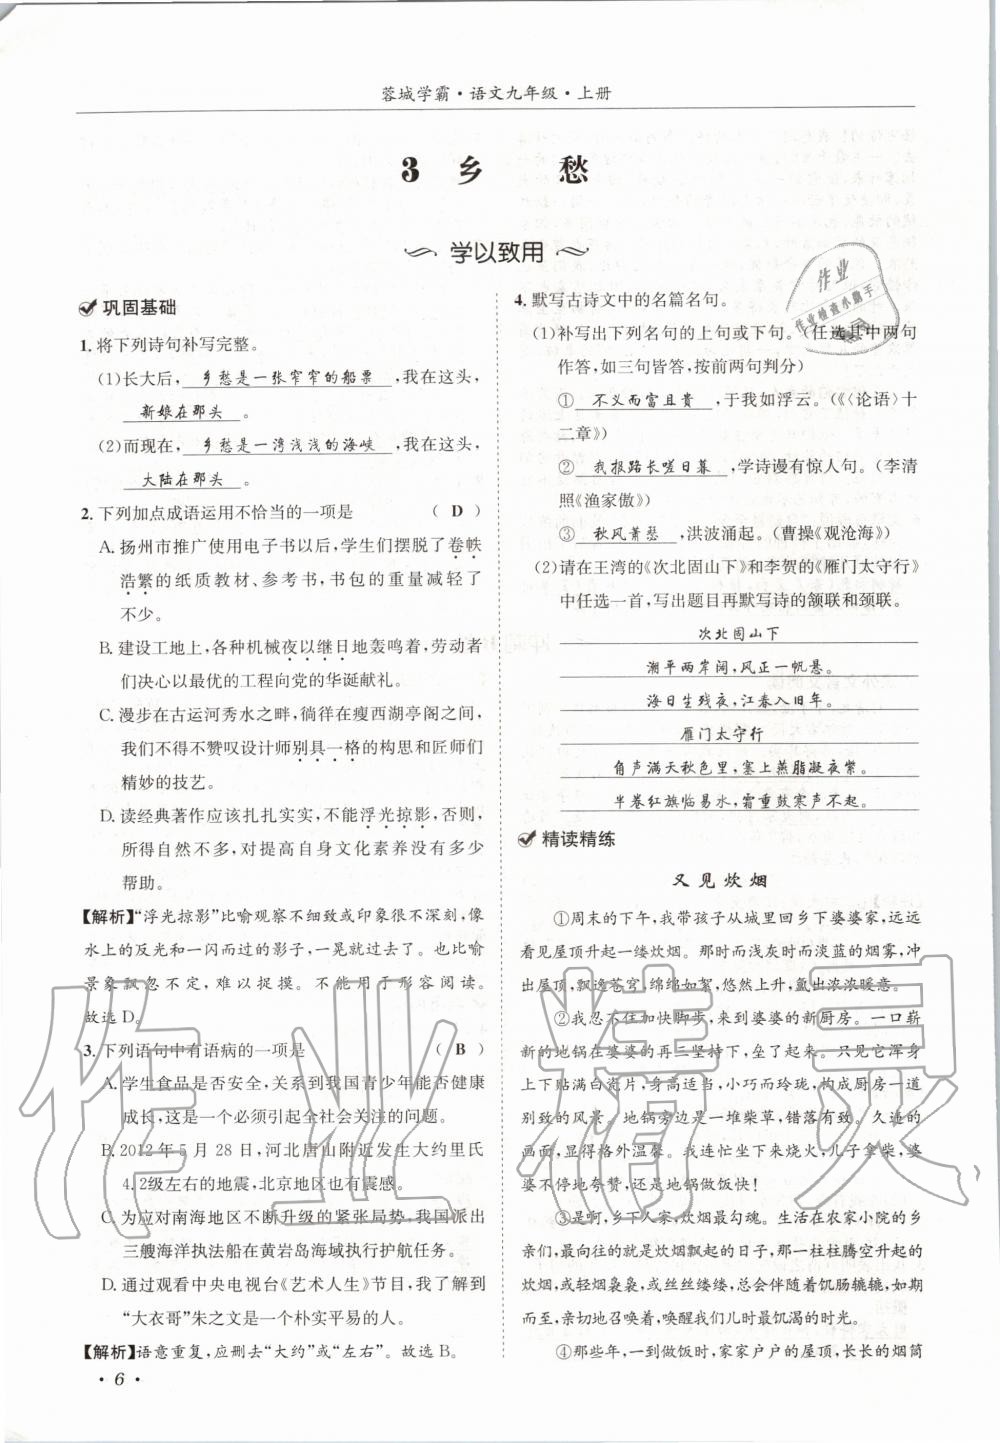 蓉城学霸·语文九年级·上册
3 乡 愁
学以致用
巩固基础
1. 将下列诗句补写完整。
(1)长大后,乡愁是一张窄窄的船票,我在这头,
新娘在那头。
(2)而现在,乡愁是一湾浅浅的海峡,我在这头,
大陆在那头。
2. 下列加点成语运用不恰当的一项是 ( D )
A. 扬州市推广使用电子书以后,学生们摆脱了卷帙
浩繁的纸质教材、参考书,书包的重量减轻了
不少。
B. 建设工地上,各种机械夜以继日地轰鸣着,劳动者
们决心以最优的工程向党的华诞献礼。
C. 漫步在古运河秀水之畔,徜徉在瘦西湖亭阁之间,
我们不得不赞叹设计师别具一格的构思和匠师们
精妙的技艺。
D. 读经典著作应该扎扎实实,不能浮光掠影,否则,
所得自然不多,对于自身文化素养没有多少
帮助。
【解析】“浮光掠影”比喻观察不细致或印象很不深刻,像
水上的反光和一闪而过的影子,一晃就过去了。也比喻
景象飘忽不定,难以捉摸。不能用于形容阅读。
故选D。
3. 下列语句中有语病的一项是 ( B )
A. 学生食品是否安全,关系到我国青少年能否健康
成长,这是一个必须引起全社会关注的问题。
B. 2012年5月28日,河北唐山附近发生大约里氏
4.2级左右的地震,北京地区也有震感。
C. 为应对南海地区不断升级的紧张局势,我国派出
三艘海洋执法船在黄岩岛海域执行护航任务。
D. 通过观看中央电视台《艺术人生》节目,我了解到
“大衣哥”朱之文是一个朴实平易的人。
【解析】语意重复,应删去“大约”或“左右”。故选B。
·6·
4. 默写古诗文中的名篇名句。
(1)补写出下列名句的上句或下句。(任选其中两句
作答,如三句皆答,按前两句判分)
① 不义而富且贵,于我如浮云。(《〈论语〉十
二章》)
② 我报路长嗟日暮,学诗谩有惊人句。(李清
照《渔家傲》)
③ 秋风萧瑟,洪波涌起。(曹操《观沧海》)
(2)请在王湾的《次北固山下》和李贺的《雁门太守行》
中任选一首,写出题目再默写诗的颔联和颈联。
次北固山下
潮平两岸阔,风正一帆悬。
海日生残夜,江春入旧年。
雁门太守行
角声满天秋色里,塞上燕脂凝夜紫。
半卷红旗临易水,霜重鼓寒声不起。
精读精练
又见炊烟
①周末的下午,我带孩子从城里回乡下婆婆家,远远
看见屋顶升起一缕炊烟。那时而浅灰时而淡蓝的烟雾,冲
出屋顶,飘逸苍穹,绵绵如絮,悠然上升,氤出浓浓暖意。
②我忍不住加快脚步,来到婆婆的新厨房。一口崭
新的地锅在婆婆的再三坚持下,垒了起来。只见它浑身上
下贴满白瓷片,高矮适当,小巧而玲珑,构成厨房一道
别致的风景。地锅旁边是一堆柴草,错落有致。久违的
画面,显得格外温馨。我赶忙坐下来烧火,儿子拿柴,婆
婆不停地夸赞,还是地锅做饭快!
③是啊,乡下人家,炊烟最勾魂。生活在农家小院的乡
亲们,最惬意的莫过于炊烟飘起的日子,那一柱柱腾空升起的
炊烟,或细烟袅袅,或丝丝缕缕,总会伴随着饥肠辘辘,如期
而至,声声召唤着,唤醒我们儿时最饥渴的时光。
④那些年,一到做饭时,家家户户的屋顶,长长的烟筒
作业
作业检查小助手
作业精灵